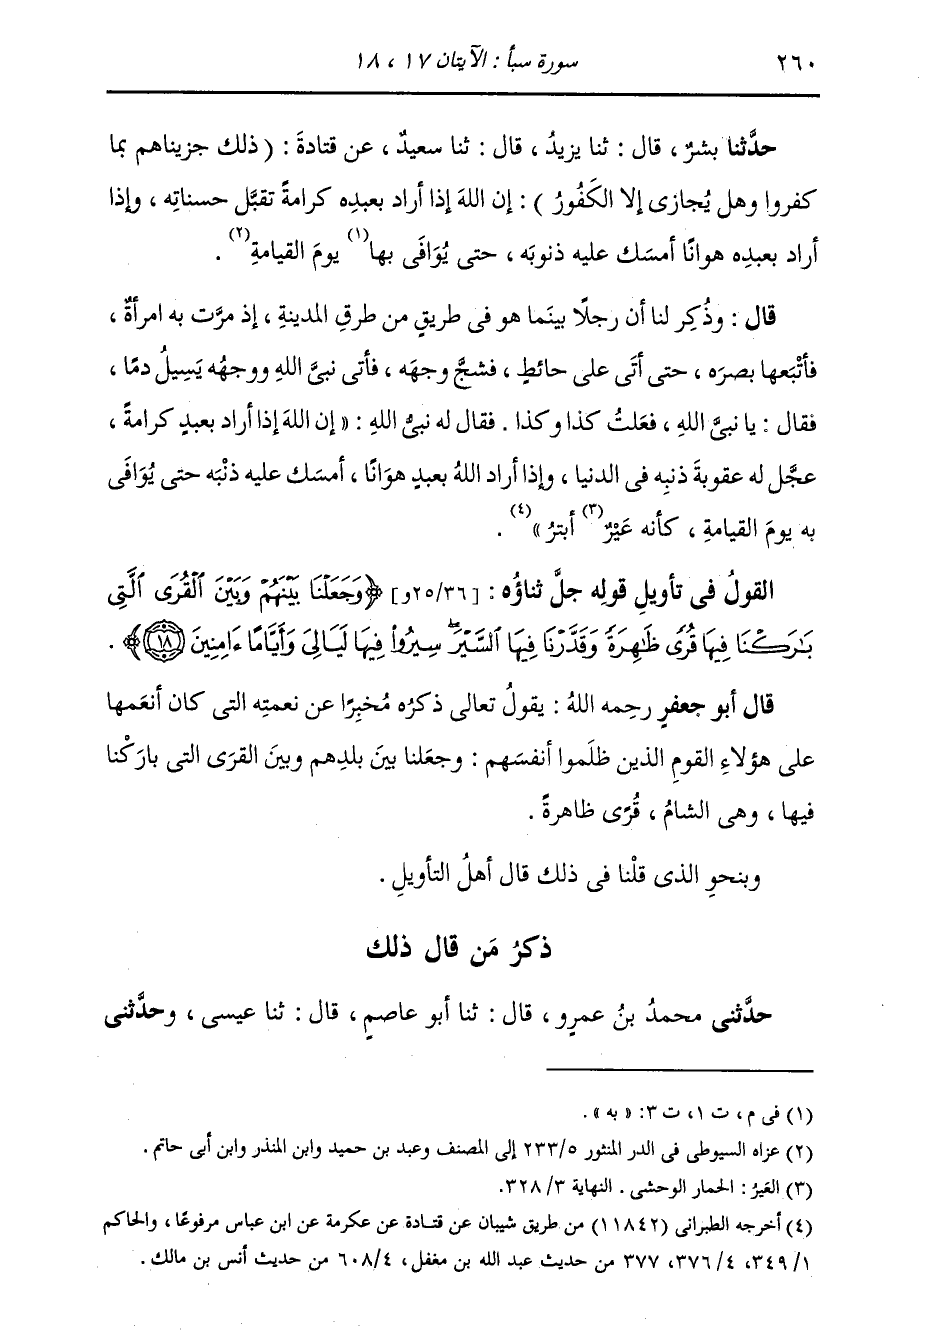 ٢٦٠ سورة سبأ : الآيتان ١٧ ، ١٨
حدَّثنا بشرٌ ، قال : ثنا يزيدُ ، قال : ثنا سعيدٌ ، عن قتادةَ : ( ذلك جزيناهم بما
كفروا وهل يُجازى إلا الكَفُورُ ) : إن اللهَ إذا أراد بعبدِه كرامةً تقبَّل حسناتِه ، وإذا
أراد بعبدِه هوانًا أمسَك عليه ذنوبَه ، حتى يُوَافَى بها(١) يومَ القيامةِ(٢) .
قال : وذُكِر لنا أن رجلًا بينَما هو فى طريقٍ من طرقِ المدينةِ ، إذ مرَّت به امرأةٌ ،
فأتْبَعها بصرَه ، حتى أتَى على حائطٍ ، فشجَّ وجهَه ، فأتى نبىَّ اللهِ ووجهُه يَسِيلُ دمًا ،
فقال : يا نبىَّ اللهِ ، فعَلتُ كذا وكذا . فقال له نبىُّ اللهِ : « إن اللهَ إذا أراد بعبدٍ كرامةً ،
عجَّل له عقوبةَ ذنبِه فى الدنيا ، وإذا أراد اللهُ بعبدٍ هوَانًا ، أمسَك عليه ذنْبَه حتى يُوَافَى
به يومَ القيامةِ ، كأنه عَيْرٌ(٣) أبترُ »(٤) .
القولُ فى تأويلِ قولِه جلَّ ثناؤُه : [٢٥/٣٦و] ﴿وَجَعَلْنَا بَيْنَهُمْ وَبَيْنَ ٱلْقُرَى ٱلَّتِى
بَٰرَكْنَا فِيهَا قُرًى ظَٰهِرَةً وَقَدَّرْنَا فِيهَا ٱلسَّيْرَ سِيرُوا۟ فِيهَا لَيَالِىَ وَأَيَّامًا ءَامِنِينَ ۝١٨﴾ .
قال أبو جعفرٍ رحِمه اللهُ : يقولُ تعالى ذكرُه مُخبِرًا عن نعمتِه التى كان أنعَمها
على هؤلاءِ القومِ الذين ظلَموا أنفسَهم : وجعَلنا بينَ بلدِهم وبينَ القرَى التى بارَكْنا
فيها ، وهى الشامُ ، قُرًى ظاهرةً .
وبنحوِ الذى قلْنا فى ذلك قال أهلُ التأويلِ .
ذكرُ مَن قال ذلك
حدَّثنى محمدُ بنُ عمرٍو ، قال : ثنا أبو عاصمٍ ، قال : ثنا عيسى ، وحدَّثنى
(١) فى م ، ت ١، ت ٣: « به » .
(٢) عزاه السيوطى فى الدر المنثور ٢٣٣/٥ إلى المصنف وعبد بن حميد وابن المنذر وابن أبى حاتم .
(٣) العَيرُ : الحمار الوحشى . النهاية ٣٢٨/٣.
(٤) أخرجه الطبرانى (١١٨٤٢) من طريق شيبان عن قتادة عن عكرمة عن ابن عباس مرفوعًا ، والحاكم
٣٤٩/١، ٣٧٦/٤، ٣٧٧ من حديث عبد الله بن مغفل ، ٦٠٨/٤ من حديث أنس بن مالك .